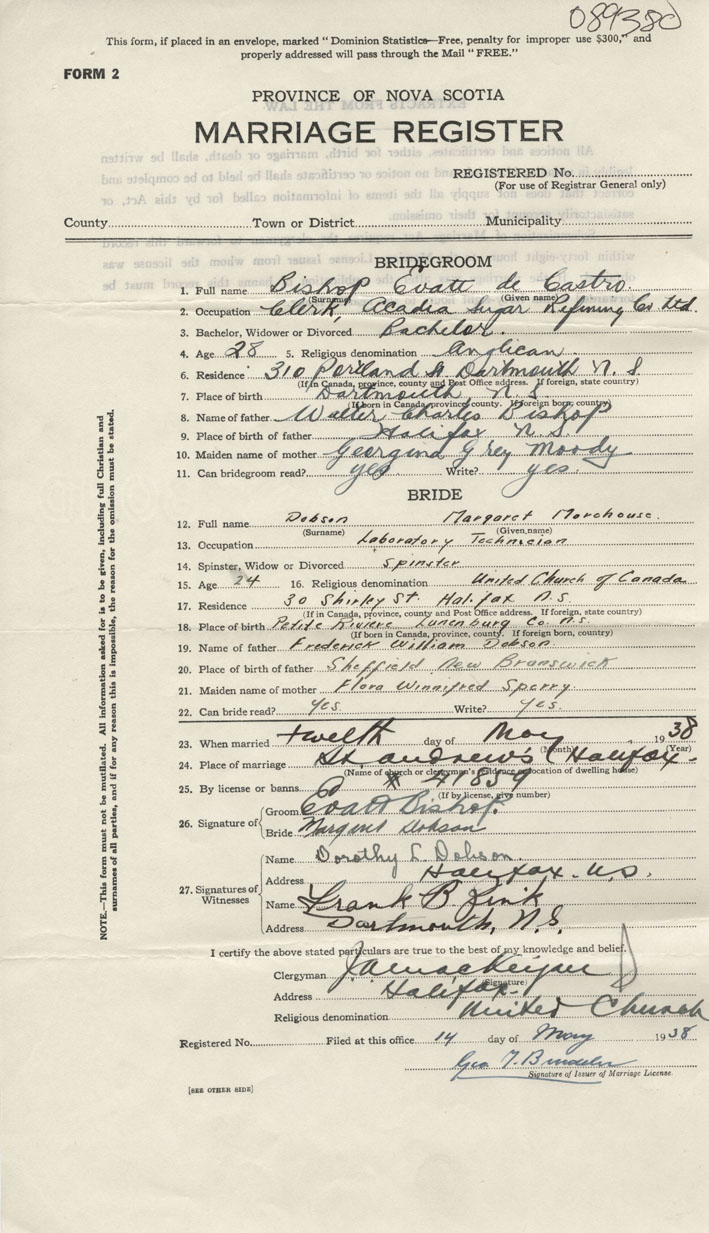 089380
This form, if placed in an envelope, marked "Dominion Statistics—Free, penalty for improper use $300," and
properly addressed will pass through the Mail "FREE."
FORM 2
PROVINCE OF NOVA SCOTIA
MARRIAGE REGISTER
REGISTERED No.
(For use of Registrar General only)
County Town or District Municipality
BRIDEGROOM
1. Full name Bishop Evatt de Castro.
(Surname) (Given name)
2. Occupation Clerk, Acadia Sugar Refining Co Ltd.
3. Bachelor, Widower or Divorced Bachelor.
4. Age 28 5. Religious denomination Anglican.
6. Residence 310 Portland St Dartmouth N.S
(If in Canada, province, county and Post Office address. If foreign, state country)
7. Place of birth Dartmouth, N.S.
(If born in Canada, province, county. If foreign born, country)
8. Name of father Walter Charles Bishop
9. Place of father Halifax N.S.
10. Maiden name of mother Georgina Grey Moody
11. Can bridegroom read? yes Write? yes.
BRIDE
12. Full name Dobson Margaret Morehouse.
(Surname) (Given name)
13. Occupation Laboratory Technician
14. Spinster, Widow or Divorced Spinster
15. Age 24 16. Religious denomination United Church of Canada
17. Residence 30 Shirley St. Halifax N.S.
(If in Canada, province, county and Post Office address. If foreign, state country)
18. Place of birth Petite Riviere Lunenburg Co N.S.
(If born in Canada, province, county. If foreign born, country)
19. Name of father Frederick William Dobson
20. Place of birth of father Sheffield New Brunswick
21. Maiden name of mother Flora Winnifred Sperry
22. Can bride read? Yes. Write? yes.
23. When married twelfth day of May 1938
(Month) (Year)
24. Place of marriage St. Andrew's (Halifax.
(Name of church or clergyman's residence or location of dwelling house)
25. By license or banns # 41859
(If by license, give number)
26. Signature of Groom Evatt Bishop.
Bride Margaret Dobson
27. Signatures of Witnesses
Name Dorothy L. Dobson.
Address Halifax. N.S.
Name Frank B. Zink
Address Dartmouth, N.S.
I certify the above stated particulars are true to the best of my knowledge and belief.
Clergyman
(Signature)
Address Halifax.
Religious denomination United Church
Registered No. Filed at this office 14 day of May 1938
Geo T.
Signature of Issuer of Marriage License.
[SEE OTHER SIDE]
NOTE.—This form must not be mutilated. All information asked for is to be given, including full Christian and
surnames of all parties, and if for any reason this is impossible, the reason for the omission must be stated.